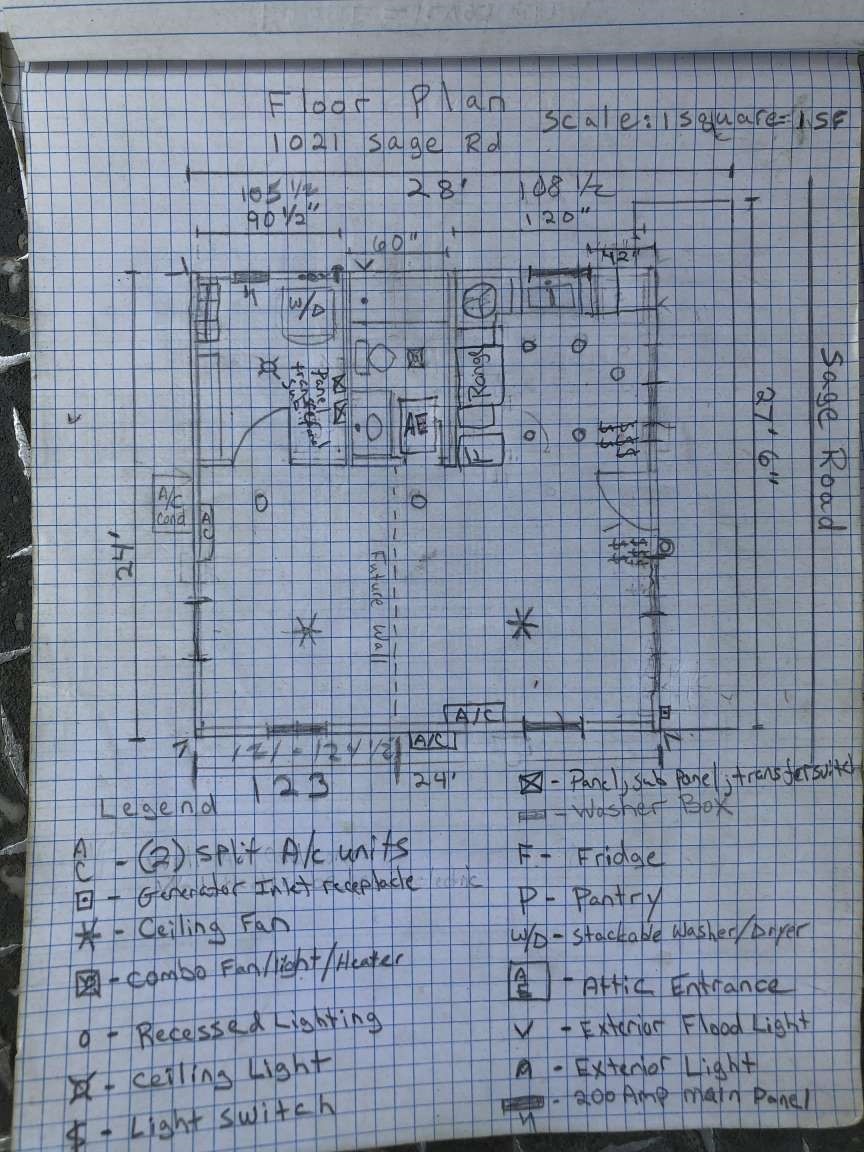 Floor Plan
Scale: 1 square = 1 SF
1021 Sage Rd
105 1/2
28'
108 1/2
90 1/2"
120"
60"
42"
W/D
Range
Panel
transfer
sub
AE
F
Sage Road
27' 6"
A/C
Cond
AC
24'
Future Wall
A/C
A/C
121 - 124 1/2
123
24'
Legend
AC - (2) split A/c units
- Generator Inlet receptacle
- Ceiling Fan
- Combo Fan/light/Heater
o - Recessed Lighting
- Ceiling Light
$ - Light Switch
- Panel, sub Panel, transferswitch
- Washer Box
F - Fridge
P - Pantry
W/D - Stackable Washer/Dryer
AE - Attic Entrance
V - Exterior Flood Light
- Exterior Light
- 200 Amp main Panel